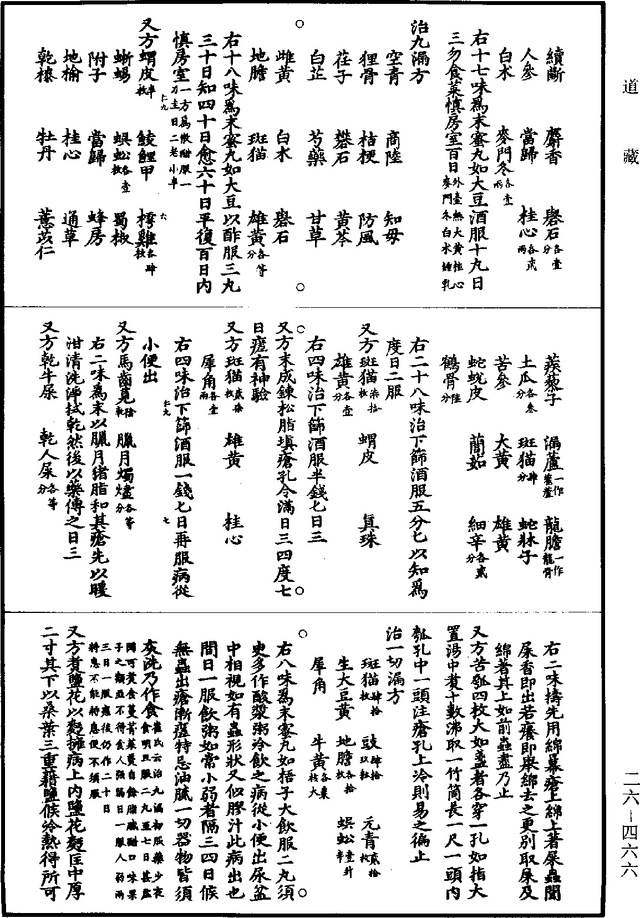 道藏
續斷 麝香 礜石各壹分
人參 當歸 桂心各貳兩
白朮 麥門冬各壹兩
右十七味爲末蜜丸如大豆酒服十丸日
三勿食菜慎房室百日外臺無大黃桂心麥門冬白朮鍾乳
治九漏方
空青 商陸 知母
狸骨 桔梗 防風
荏子 礬石 黃芩
白芷 芍藥 甘草
雌黃 白朮 礜石
地膽 斑猫 雄黃各等分
右十八味爲末蜜丸如大豆以酢服三丸
三十日知四十日愈六十日平復百日內
慎房室一方爲散酢服一刀圭日二老小半
又方蝟皮半枚 鯪鯉甲 樗雞各肆枚
蜥蜴 蜈蚣各壹枚 蜀椒
附子 當歸 蜂房
地榆 桂心 通草
乾榛 牡丹 薏苡仁
蒺藜子 漏蘆一作藜蘆 龍膽一作龍骨
土瓜各叁分 斑猫肆分 蛇牀子
苦參 大黃 雄黃
蛇蛻皮 䕡茹 細辛各貳分
鶴骨陸分
右二十八味治下篩酒服五分匕以知爲
度日二服
又方斑猫柒拾枚 蝟皮 眞珠
雄黃各壹分
右四味治下篩酒服半錢匕日三
又方末成鍊松脂填瘡孔令滿日三四度七
日瘥有神驗
又方斑猫貳拾枚 雄黃 桂心
犀角各壹兩
右四味治下篩酒服一錢匕日再服病從
小便出
又方馬齒莧陰乾 臘月燭燼各等分
右二味爲末以臘月猪脂和其瘡先以暖
泔清洗淨拭乾然後以藥傅之日三
又方乾牛屎 乾人屎各等分
右二味擣先用綿幕瘡上綿上著屎蟲聞
屎香即出若癢即舉綿去之更別取屎及
綿著其上如前蟲盡乃止
又方苦瓠四枚大如盞者各穿一孔如指大
置湯中煮十數沸取一竹筒長一尺一頭內
瓠孔中一頭注瘡孔上冷則易之徧止
治一切漏方
斑猫肆拾枚 豉肆拾玖粒 元青貳拾枚
生大豆黃 地膽各拾枚 蜈蚣壹寸半
犀角 牛黃各棗核大
右八味爲末蜜丸如梧子大飲服二丸須
吏多作酸漿粥冷飲之病從小便出尿盆
中相視如有蟲形狀又似膠汁此病出也
間日一服飲粥如常小弱者隔三四日候
無蟲出瘡漸瘥特忌油膩一切器物皆須
灰洗乃作食崔氏云治九漏初服藥少夜食明旦服二丸至七日甚虛悶可煮食蔓菁菜羹自餘脂膩酢口味果子之類並不得食人強隔日一服人弱兩三日一服瘥後仍作二十日將息不能將息便不須服
又方煮鹽花以麫擁病上內鹽花麫匡中厚
二寸其下以桑葉三重藉鹽候冷熱得所可
二六—四六六